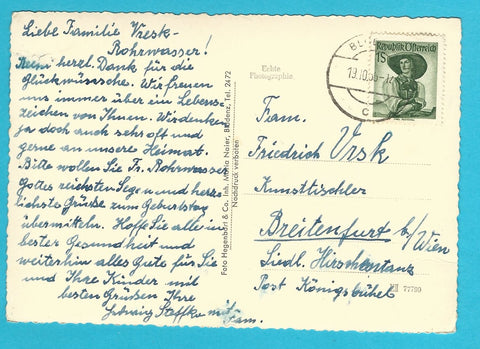 Liebe Familie Vresk-
Rohrwasser!
herzl. Dank für die
Glückwünsche. Wir freuen
uns immer über ein Lebens-
zeichen von Ihnen. Wir denken
ja doch auch sehr oft und
gerne an unsere Heimat.
Bitte wollen Sie Fr. Rohrwasser
Gottes reichsten Segen und herz-
lichste Grüße zum Geburtstag
übermitteln. Hoffe Sie alle in
bester Gesundheit und
weiterhin alles Gute für Sie
und Ihre Kinder mit
besten Grüßen Ihre
Steffka mit
Fam.
Foto Hegenbart & Co. Inh. Maria Naier, Bludenz, Tel. 2472
Nachdruck verboten
Echte
Photographie
REPUBLIK ÖSTERREICH
1S
BLU
19.10.55
c
Familie
Friedrich Vrsk
Kunsttischler
Breitenfurt b/Wien
Siedl. Hirschentanz
Post Königsbühel
77789